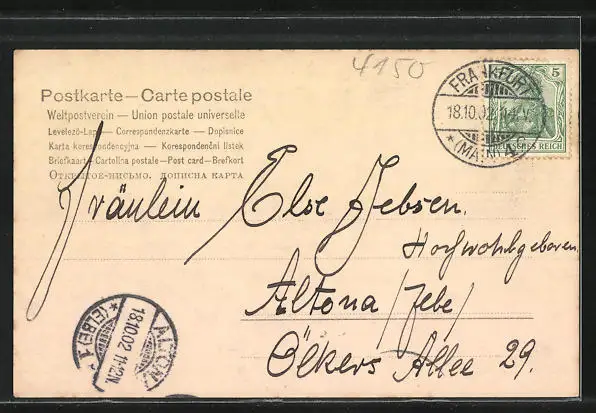 4150
Postkarte — Carte postale
Weltpostverein — Union postale universelle
Levelező-Lap — Correspondenzkarte — Dopisnice
Karta korespondencyjna — Korespondenčni listek
Briefkaart — Cartolina postale — Post card — Brefkort
Открытое-письмо. дописна карта
FRANKFURT
18.10.02
* (MAIN)
5
DEUTSCHES REICH
Fräulein Else Jebsen.
Hochwohlgeboren
Altona /Elbe/
Ölkers Allee 29.
ALTONA
18.10.02 11-12N.
* (ELBE) 1